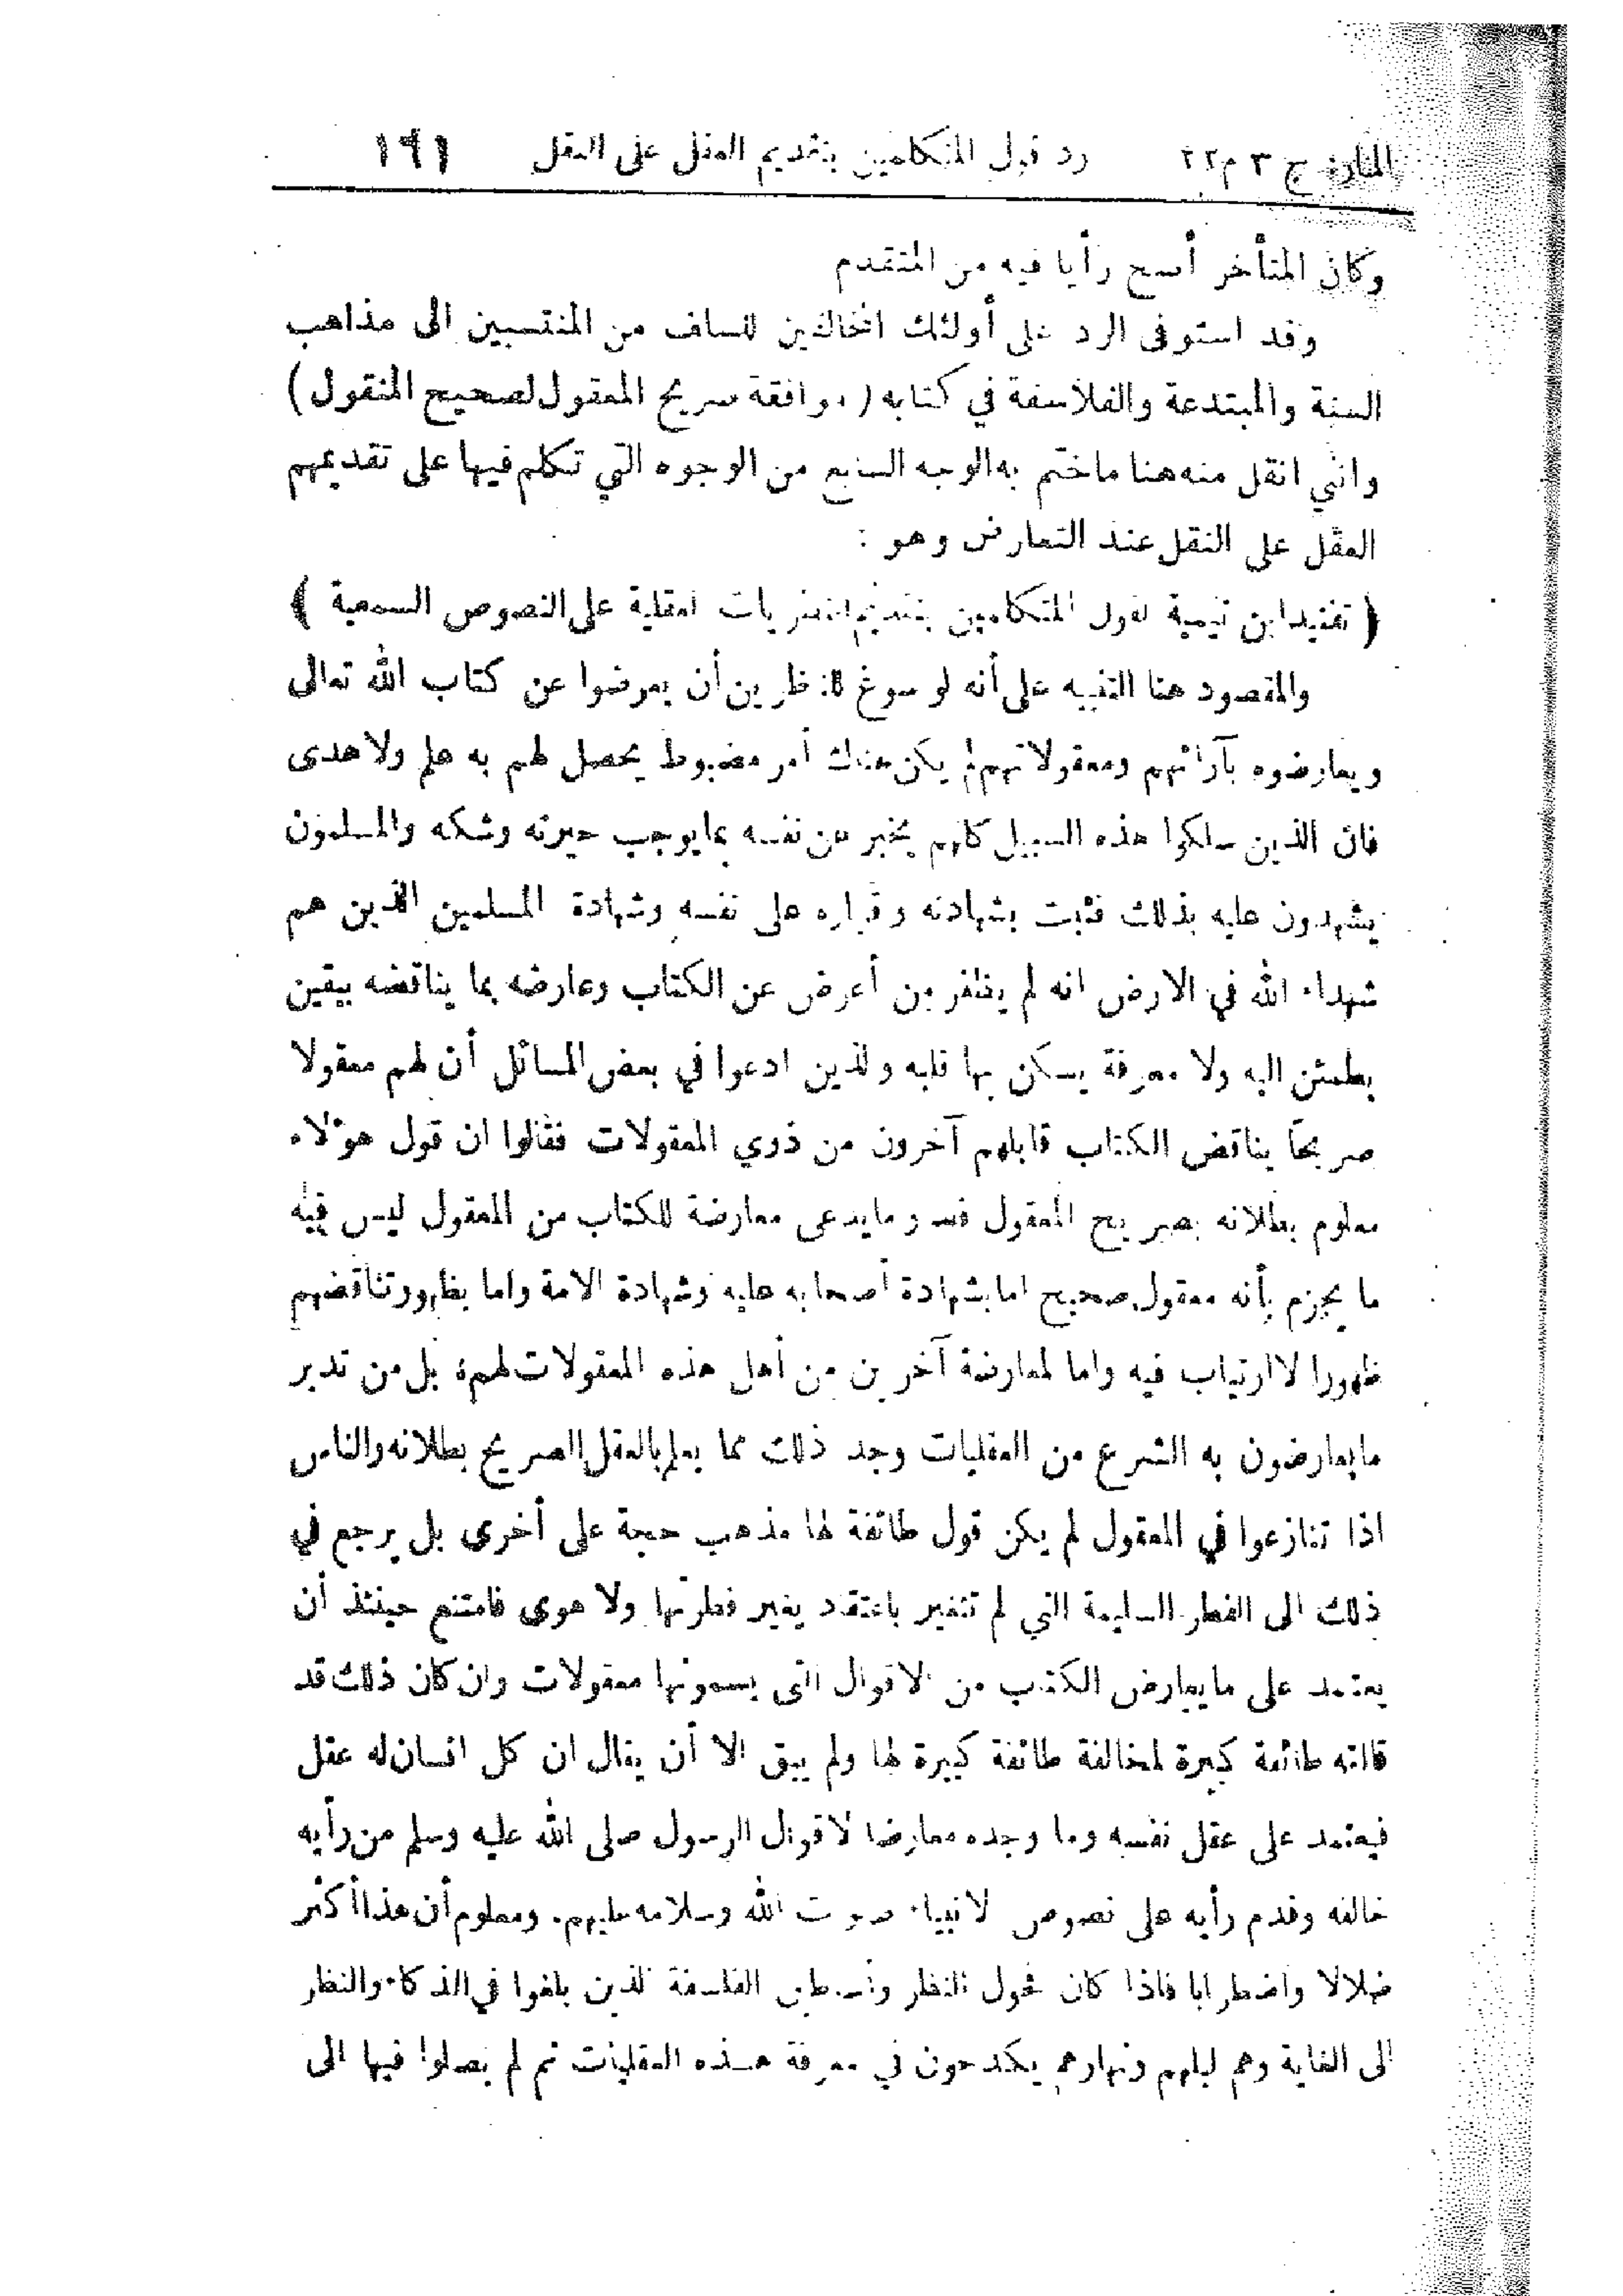 المنار: ج ٣ م ٢٢ رد قول المتكلمين بتقديم العقل على النقل ١٩١
وكان المتأخر أسح رأيا فيه من المتقدم
وقد استوفى الرد على أولئك المخالفين للسلف من المنتسبين الى مذاهب
السنة والمبتدعة والفلاسفة في كتابه ( موافقة صريح المعقول لصحيح المنقول )
وانني انقل منه هنا ما ختم به الوجه السابع من الوجوه التي تكلم فيها على تقديمهم
العقل على النقل عند التعارض وهو :
﴿ تفنيد ابن تيمية لقول المتكلمين بتقديم النظريات العقلية على النصوص السمعية ﴾
والمقصود هنا التنبيه على أنه لو سوغ للناظرين أن يعرضوا عن كتاب الله تعالى
ويعارضوه بآرائهم ومعقولاتهم لم يكن هناك أمر مضبوط يحصل لهم به علم ولا هدى
فان الذين سلكوا هذه السبيل كلهم يخبر عن نفسه بما يوجب حيرته وشكه والمسلمون
يشهدون عليه بذلك فثبت بشهادته وقراره على نفسه وشهادة المسلمين الذين هم
شهداء الله في الارض انه لم يظفر من أعرض عن الكتاب وعارضه بما يناقضه بيقين
يطمئن اليه ولا معرفة يسكن بها قلبه والذين ادعوا في بعض المسائل أن لهم معقولا
صريحا يناقض الكتاب قابلهم آخرون من ذوي المعقولات فقالوا ان قول هؤلاء
معلوم بطلانه بصريح المعقول فصار ما يدعى معارضة للكتاب من المعقول ليس فيه
ما يجزم بأنه معقول صحيح اما بشهادة أصحابه عليه وشهادة الامة واما بظهور تناقضهم
ظهورا لا ارتياب فيه واما لمعارضة آخرين من أهل هذه المعقولات لهم، بل من تدبر
ما يعارضون به الشرع من العقليات وجد ذلك مما يعلم بالعقل الصريح بطلانه والناس
اذا تنازعوا في المعقول لم يكن قول طائفة لها مذهب حجة على أخرى بل يرجع في
ذلك الى الفطر السليمة التي لم تتغير باعتقاد يغير فطرتها ولا هوى فامتنع حينئذ أن
يعتمد على ما يعارض الكتاب من الاقوال التى يسمونها معقولات وان كان ذلك قد
قالته طائفة كبيرة لمخالفة طائفة كبيرة لها ولم يبق الا أن يقال ان كل انسان له عقل
فيعتمد على عقل نفسه وما وجده معارضا لاقوال الرسول صلى الله عليه وسلم من رأيه
خالفه وقدم رأيه على نصوص الانبياء صلوات الله وسلامه عليهم. ومعلوم أن هذا أكثر
ضلالا واضطرابا فاذا كان فحول النظر وأساطين الفلسفة الذين بلغوا في الذكاء والنظر
الى الغاية وهم ليلهم ونهارهم يكدحون في معرفة هذه العقليات ثم لم يصلوا فيها الى